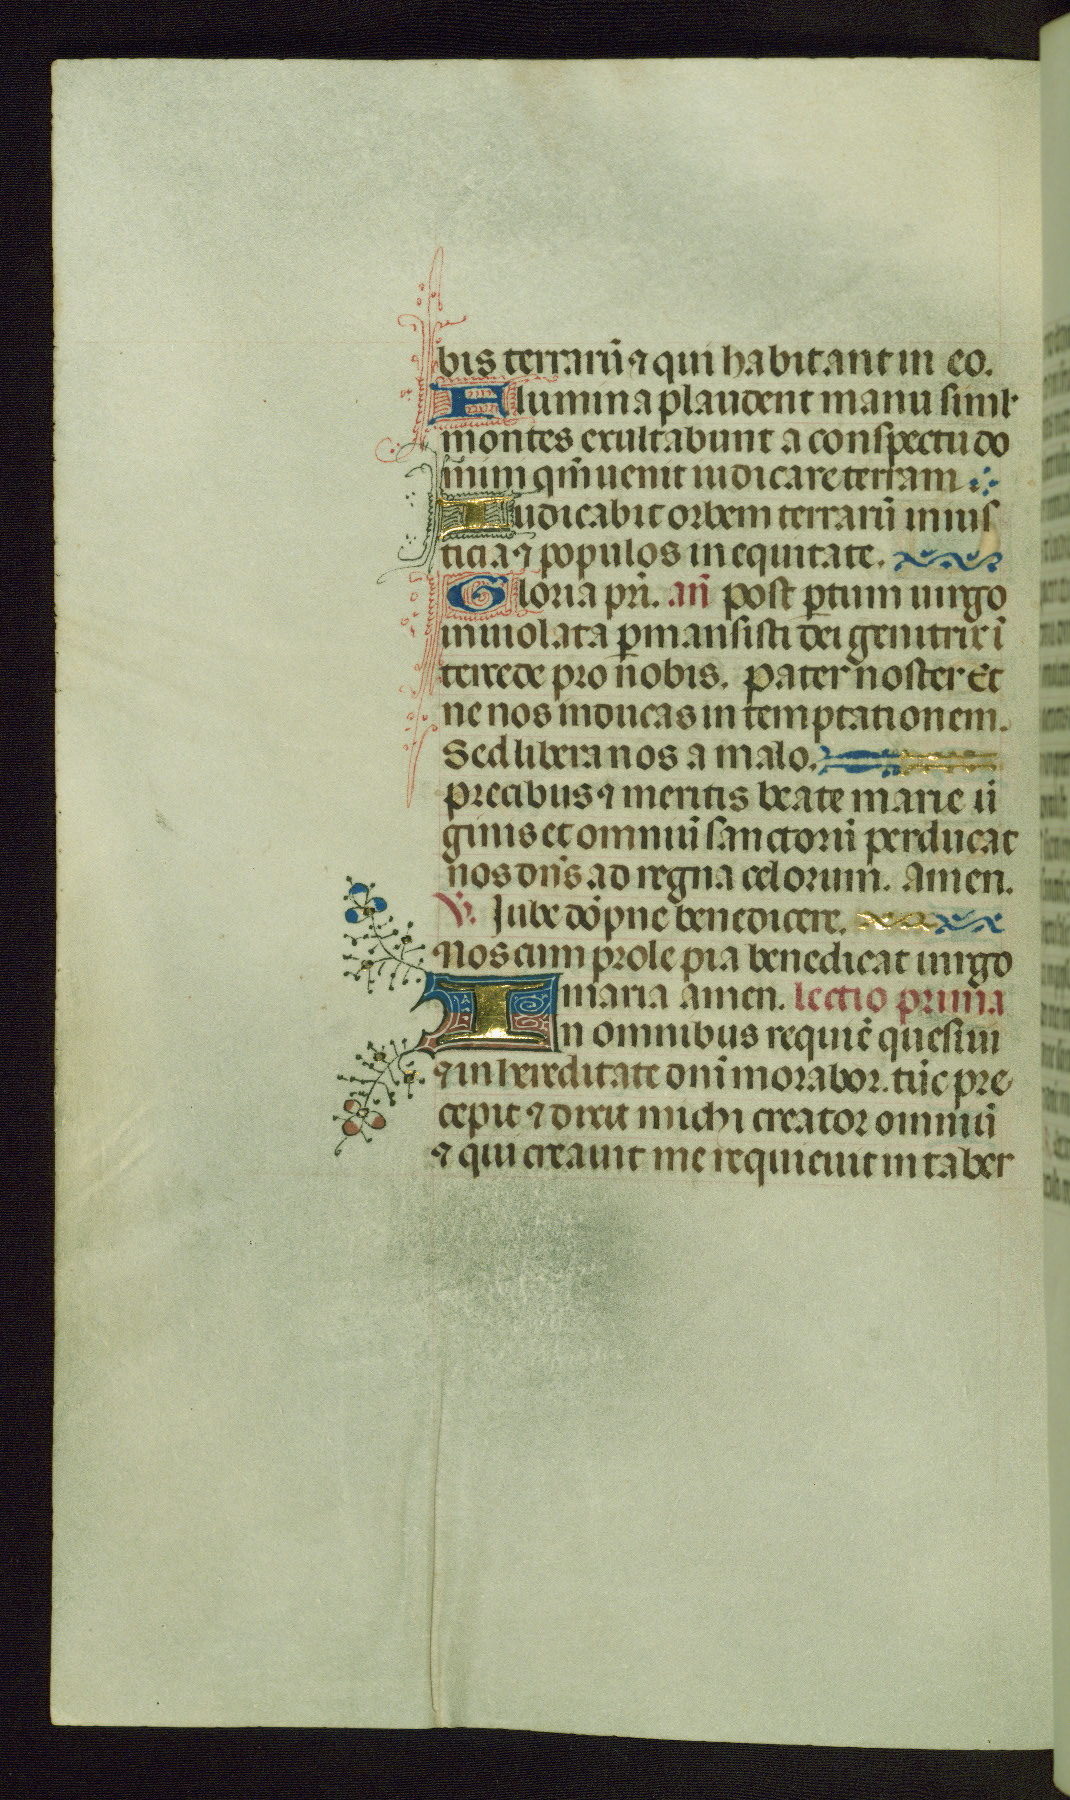 bis terrarū ⁊ qui habitant in eo.
Flumina plaudent manu simĺ
montes exultabunt a conspectu do
mini qm̄ uenit iudicare terram
Iudicabit orbem terrarū in ius
ticia ⁊ populos in equitate.
Gloria pr̄i. an̄ post ꝑtum uirgo
inuiolata ꝑmansisti dei genitrix ī
tercede pro nobis. Pater noster Et
ne nos inducas in temptationem.
Sed libera nos a malo.
precibus ⁊ meritis beate marie ū
ginis et omniū sanctorū perducat
nos dn̄s ad regna celorum. Amen.
℣. Iube dōpne benedicere.
Nos cum prole pia benedicat uirgo
maria amen. lectio prima
In omnibus requiē quesiui
⁊ in hereditate dn̄i morabor. tūc pre
cepit ⁊ dixit michi creator omniū
⁊ qui creauit me requieuit in taber